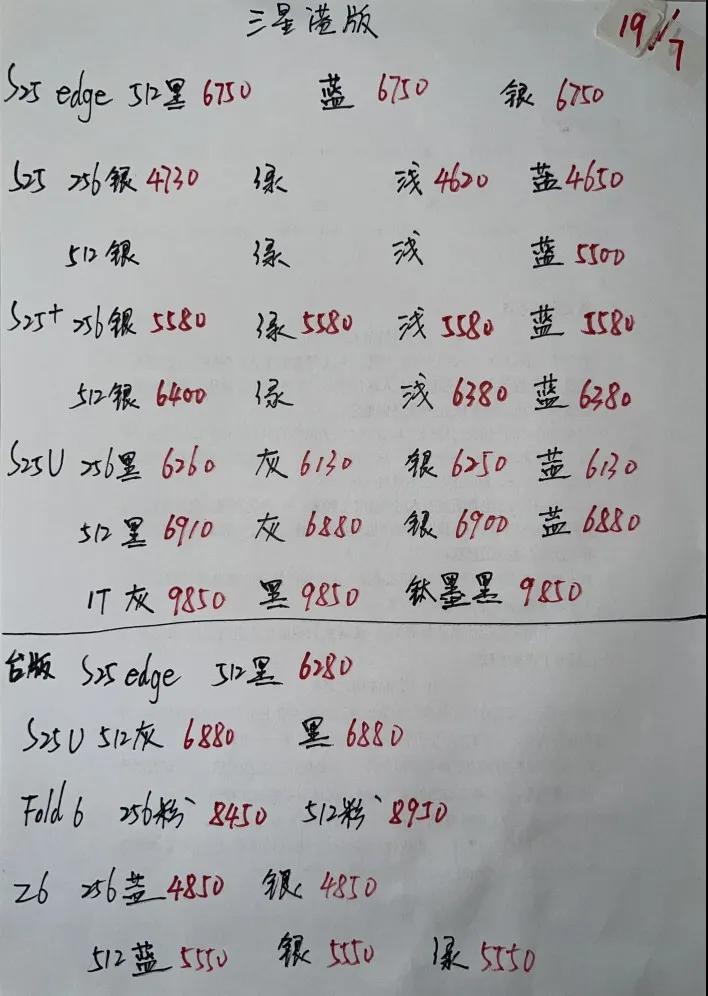 三星港版 19/7
S25 edge 512黑 6750 蓝 6750 银 6750
S25 256银 4730 绿 浅 4620 蓝 4650
512银 绿 浅 蓝 5500
S25+ 256银 5580 绿 5580 浅 5580 蓝 5580
512银 6400 绿 浅 6380 蓝 6380
S25U 256黑 6260 灰 6130 银 6250 蓝 6130
512黑 6910 灰 6880 银 6900 蓝 6880
1T 灰 9850 黑 9850 钛墨黑 9850
台版 S25 edge 512黑 6280
S25U 512灰 6880 黑 6880
Fold 6 256粉 8450 512粉 8950
Z6 256蓝 4850 银 4850
512蓝 5550 银 5550 绿 5550